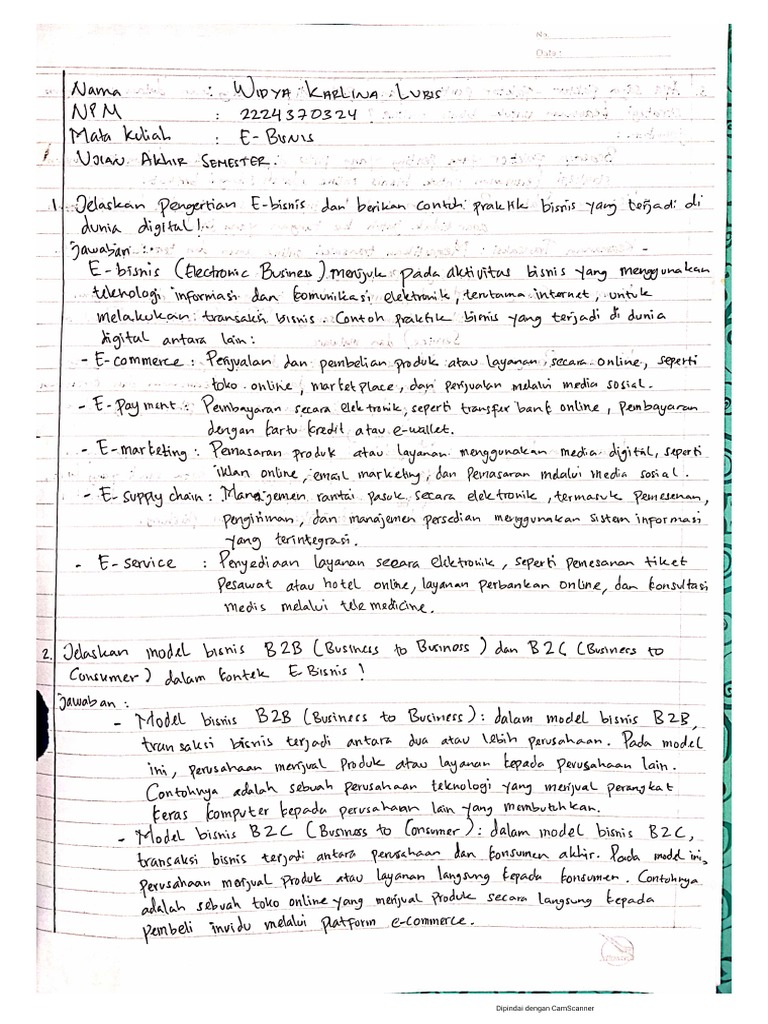 No.
Date:
Nama : WIDYA KARLINA LUBIS
NPM : 2224370324
Mata Kuliah : E-BISNIS
UJIAN AKHIR SEMESTER.
1. Jelaskan Pengertian E-bisnis dan berikan contoh praktik bisnis yang terjadi di
dunia digital!
Jawaban :
E-bisnis (Electronic Business) merujuk pada aktivitas bisnis yang menggunakan
teknologi informasi dan komunikasi elektronik, terutama internet, untuk
melakukan transaksi bisnis. Contoh praktik bisnis yang terjadi di dunia
digital antara lain:
- E-commerce : Penjualan dan pembelian produk atau layanan secara online, seperti
toko online, marketplace, dan penjualan melalui media sosial.
- E-payment : Pembayaran secara elektronik, seperti transfer bank online, pembayaran
dengan kartu kredit atau e-wallet.
- E-marketing : Pemasaran produk atau layanan menggunakan media digital, seperti
iklan online, email marketing, dan pemasaran melalui media sosial.
- E-supply chain : Manajemen rantai pasok secara elektronik, termasuk pemesenan,
pengiriman, dan manajemen persedian menggunakan sistem informasi
yang terintegrasi.
- E-service : Penyediaan layanan secara elektronik, seperti pemesanan tiket
pesawat atau hotel online, layanan perbankan online, dan konsultasi
medis melalui telemedicine.
2. Jelaskan model bisnis B2B (Business to Business) dan B2C (Business to
Consumer) dalam kontek E-Bisnis!
Jawaban :
- Model bisnis B2B (Business to Business) : dalam model bisnis B2B,
transaksi bisnis terjadi antara dua atau lebih perusahaan. Pada model
ini, perusahaan menjual produk atau layanan kepada perusahaan lain.
Contohnya adalah sebuah perusahaan teknologi yang menjual perangkat
keras komputer kepada perusahaan lain yang membutuhkan.
- Model bisnis B2C (Business to Consumer) : dalam model bisnis B2C,
transaksi bisnis terjadi antara perusahaan dan konsumen akhir. Pada model ini,
perusahaan menjual produk atau layanan langsung kepada konsumen. Contohnya
adalah sebuah toko online yang menjual produk secara langsung kepada
pembeli invidu melalui platform e-commerce.
Dipindai dengan CamScanner